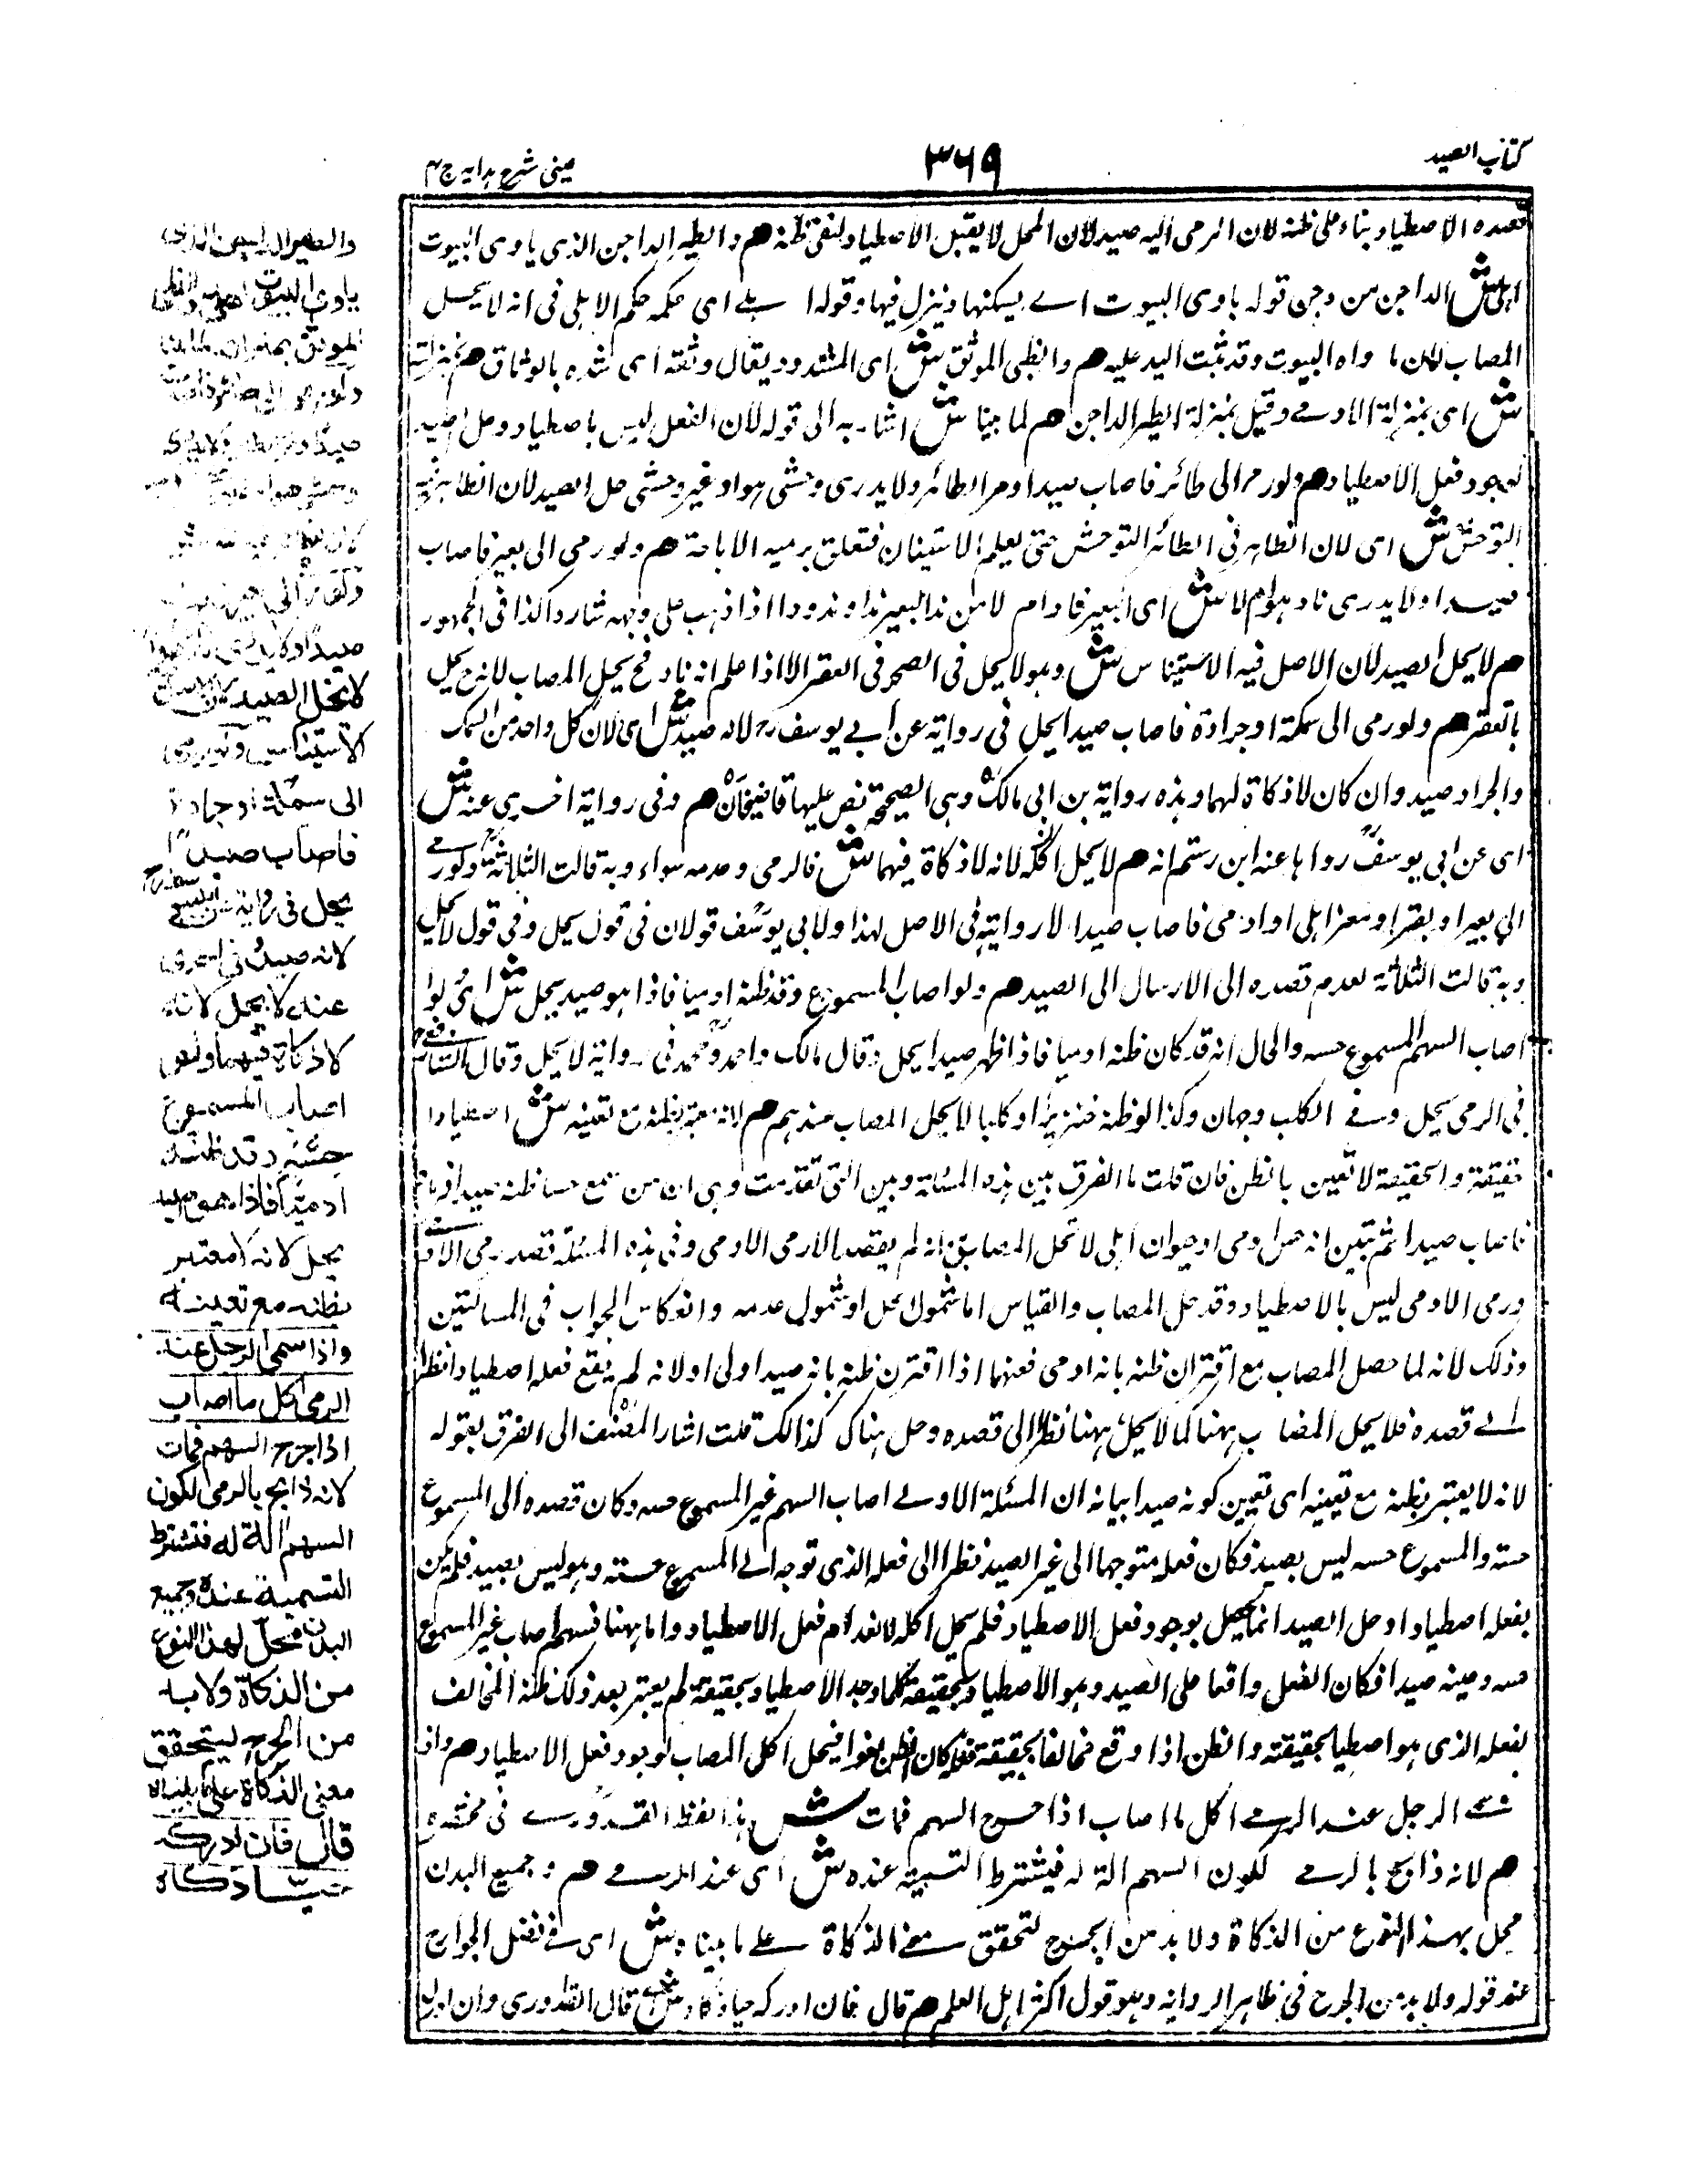 كتاب الصيد
٣٦٩
عينى شرح هدايه ج ٤
قصده الاصطياد بناء على ظنه لان الرمى اليه صيد لان المحل لا يقبل الاصطياد لنفى ظنه هم والطير الداجن الذى ياوى البيوت
اهلى ش الداجن من دجن قوله ياوى البيوت اے يسكنها وينزل فيها وقوله اهلے اى حكمه حكم الاهلى فى انه لا يحل
المصاب لان ماواه البيوت وقد ثبت اليد عليه هم والظبى الموثق ش اى المشدود يقال وثقه اى شده بالوثاق هم بمنزلته
ش اى بمنزلة الادمے وقيل بمنزلة الطير الداجن هم لما بينا ش اشار به الى قوله لان الفعل ليس باصطياد وحل الصيد
لوجود فعل الاصطياد هم ولو رمى الى طائر فاصاب صيدا ومر الطائر ولا يدرى وحشى هو او غير وحشى حل الصيد لان الظاهر فيه
التوحش ش اى لان الظاهر فى الطائر التوحش حتى يعلم الاستيناس فتعلق برميه الاباحة هم ولو رمى الى بعير فاصاب
صيدا ولا يدرى ناد هو ام لا ش اى البعير ناد ام لا من ند البعير ندا وندودا اذا ذهب على وجهه شاردا كذا فى الجمهور
هم لا يحل الصيد لان الاصل فيه الاستيناس ش وهو لا يحل فى العقر الا اذا علم انه ناد فح يحل المصاب لانه ح يحل
بالعقر هم ولو رمى الى سمكة او جرادة فاصاب صيدا يحل فى رواية عن ابے يوسف رح لانه صيد ش اى لان كل واحد من السمك
والجراد صيد وان كان لا ذكاة لهما وهذه رواية بن ابى مالك وهى الصحيحة نص عليها قاضيخان هم وفى رواية اخرى عنه ش
اى عن ابى يوسف رواها عنه ابن رستم انه هم لا يحل اكله لانه لا ذكاة فيهما ش فالرمى وعدمه سواء وبه قالت الثلاثة ولو رمے
الى بعير او بقر او معز اهلى او ادمى فاصاب صيدا لا رواية فى الاصل لهذا ولابى يوسف قولان فى قول يحل وفى قول لا يحل
وبه قالت الثلاثة لعدم قصده الى الارسال الى الصيد هم ولو اصاب المسموع وقد ظنه ادميا فاذا هو صيد يحل ش اى لو
اصاب السهم المسموع حسه والحال انه قد كان ظنه ادميا فاذا ظهر صيدا يحل وقال مالك واحمد ومحمد فى رواية لا يحل وقال الشافعى
فى الرمى يحل وفے الكلب وجهان وكذا لو ظنه خنزيرا او كلبا لا يحل المصاب عندهم هم لانه لا معتبر بظنه مع تعينه ش اصطيادا
حقيقة والحقيقة لا تعين بالظن فان قلت ما الفرق بين هذه المسئلة وبين التى تقدمت وهى ان من سمع حسا ظنه صيدا فرماه
فاصاب صيدا ثم تبين انه حس ادمى او حيوان اهلى لا تحل المصاب انه لم يقصد الا رمى الادمى وفى هذه المسئلة قصد رمى الادمے
ورمى الادمى ليس بالاصطياد وقد حل المصاب والقياس اما شمول الحل او شمول عدمه وانعكاس الجواب فى المسالتين
وذلك لانه لما حصل المصاب مع اقتران ظنه بانه ادمى فعنهما اذا اقترن ظنه بانه صيد اولى او لانه لم يقع فعله اصطيادا نظرا
الے قصده فلا يحل المصاب ههنا كما لا يحل ههنا نظرا الى قصده وحل هناك كذالك قلت اشار المصنف الى الفرق بقوله
لانه لا يعتبر بظنه مع تعينه اى تعين كونه صيدا بيانه ان المسئلة الاولے اصاب السهم غير المسموع حسه وكان قصده الى المسموع
حسه والمسموع حسه ليس بصيد فكان فعله متوجها الى غير الصيد نظرا الى فعله الذى توجه الے المسموع حسه وهو ليس بصيد فلم يكن
بفعله اصطيادا وحل الصيد انما يحصل بوجود فعل الاصطياد فلم يحل اكله لانعدام فعل الاصطياد واما ههنا فسهم اصاب غير المسموع
حسه وعينه صيدا فكان الفعل واقعا على الصيد وهو الاصطياد بحقيقة فلما وجد الاصطياد بحقيقة لم يعتبر بعد ذلك ظنه المخالف
لفعله الذى هو اصطياد بحقيقته والظن اذا وقع مخالفا لحقيقة فعله كان الظن لغوا فيحل اكل المصاب لوجود فعل الاصطياد هم واذا
سمے الرجل عند الرمے اكل ما اصاب اذا جرح السهم فمات ش هذا لفظ القدورے فى مختصره
هم لانه ذابح بالرمے لكون السهم الة له فيشترط التسمية عنده ش اى عند الرمے هم وجميع البدن
محل بهذا النوع من الذكاة ولا بد من الجرح لتحقق معنے الذكاة علے ما بيناه ش اى فے فصل الجوارح
عند قوله ولا بد من الجرح فى ظاهر الرواية وهو قول اكثر اهل العلم هم قال فان ادركه حيا ذكاه ش اى قال القدورى وان ادرك
والطير الداجن الذى
ياوى البيوت اهلى والظبى
الموثق بمنزلته لما بينا
ولو رمى الى طائر فاصاب
لا يحل الصيد لان الاصل
الاستيناس ولو رمى
الى سمكة او جرادة
فاصاب صيدا
يحل فى رواية عن ابى يوسف رح
لانه صيد وفى اخرى
عنه لا يحل لانه
لا ذكاة فيهما ولو
اصاب المسموع
حسه وقد ظنه
ادميا فاذا هو صيد
يحل لانه لا معتبر
بظنه مع تعينه
واذا سمى الرجل عند
الرمى اكل ما اصاب
اذا جرح السهم فمات
لانه ذابح بالرمى لكون
السهم الة له فتشترط
التسمية عنده وجميع
البدن محل لهذا النوع
من الذكاة ولا بد
من الجرح ليتحقق
معنى الذكاة على ما بيناه
قال فان ادركه
حيا ذكاه